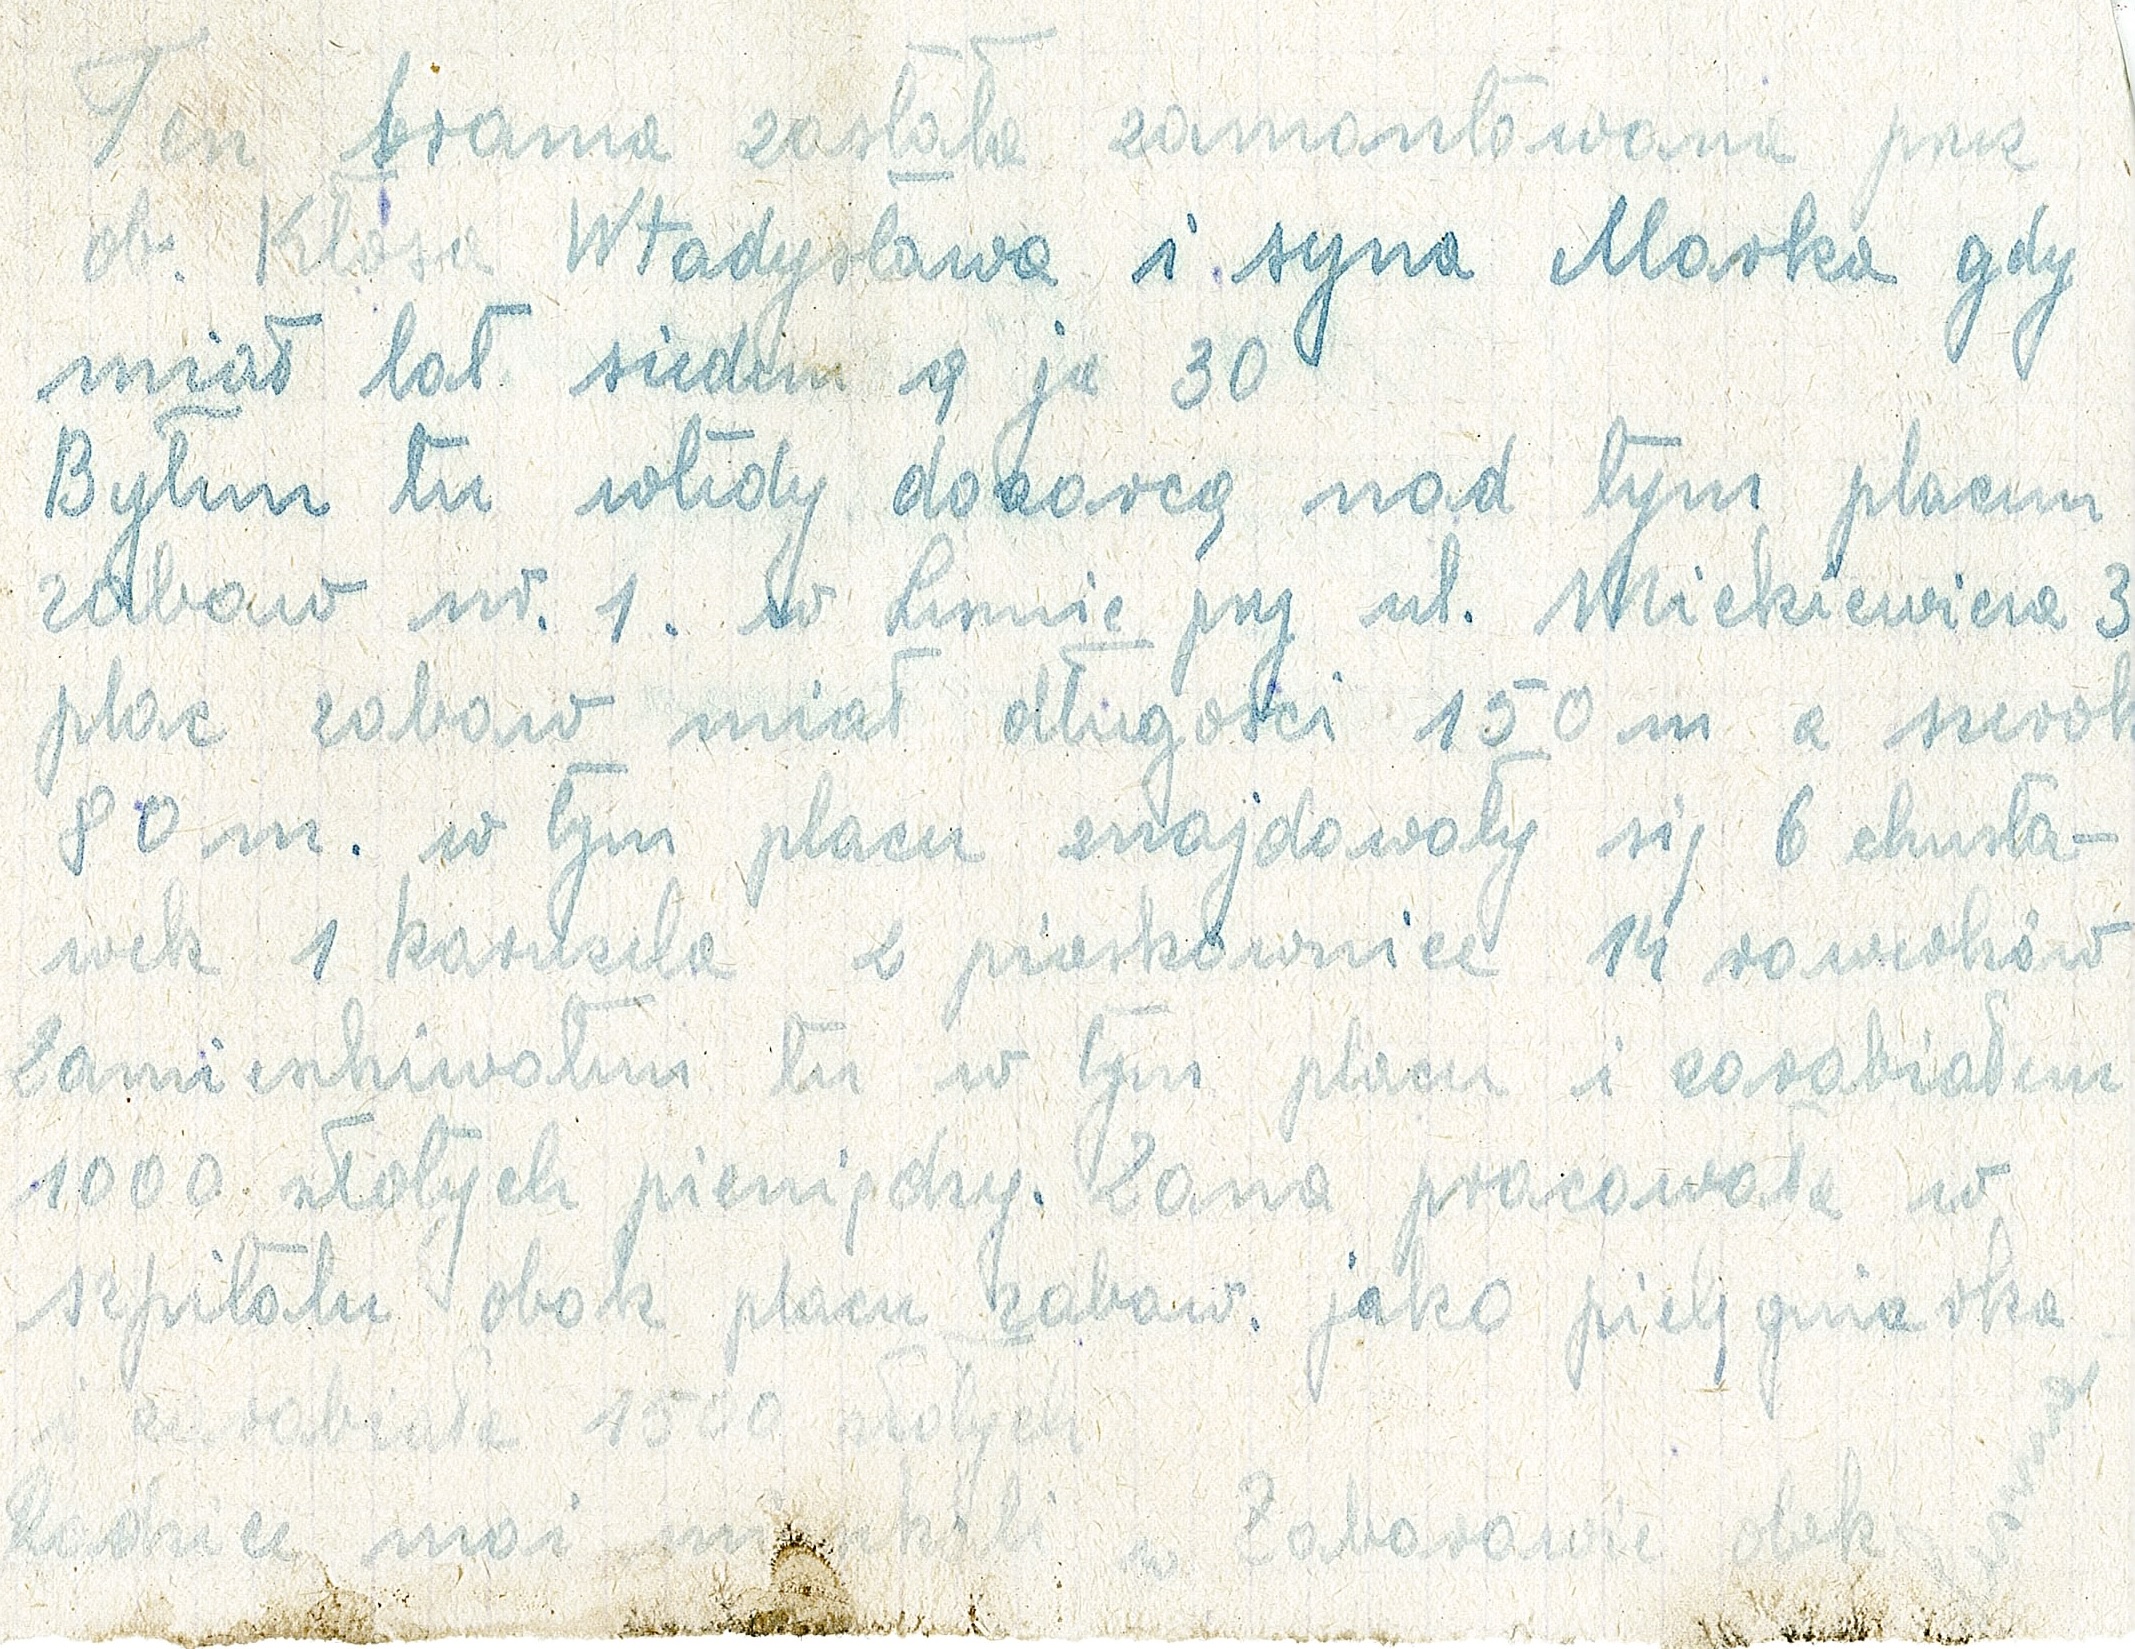 Ten brama została zamontowana prez
ob. Kłosa Władysława i syna Marka gdy
miał lat siedem a ja 30
Byłem tu wtedy dozorcą nad tym placem
zabaw nr. 1. w Lesznie przy ul. Mickiewicza 3
plac zabaw miał długości 150 m a szerok
80 m. w tym placu znajdowały się 6 chuśta-
wek 1 karuzela 2 piaskownice 14 rowerków
Zamieszkiwałem tu w tym placu i zarabiałem
1000 złotych pieniędzy. Żona pracowała w
szpitalu obok placu zabaw. jako pielęgniarka
i zarabiała 1500 złotych
Rodzice moi mieszkali w Zaborowie obok Leszna